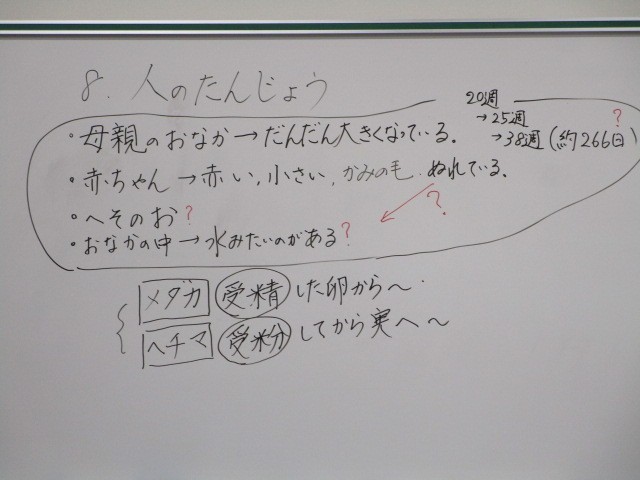 8. 人のたんじょう
20週
→25週
→38週(約266日)?
・母親のおなか→だんだん大きくなっている。
・赤ちゃん→赤い,小さい,かみの毛.ぬれている。
?
・へそのお?
・おなかの中→水みたいのがある?
メダカ 受精した卵から〜.
ヘチマ 受粉してから実へ〜